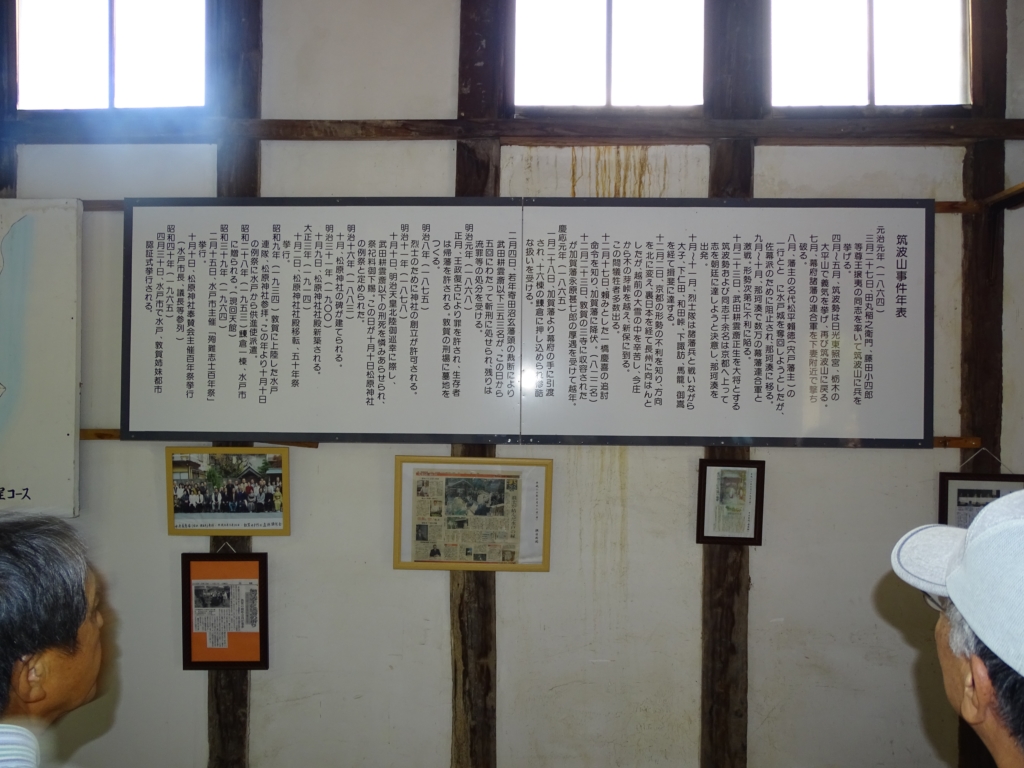 筑波山事件年表
元治元年(一八六四)
三月二十七日、田丸稲之衛門、藤田小四郎
等尊王攘夷の同志を率いて筑波山に兵を
挙げる。
四月~五月、筑波勢は日光東照宮、栃木の
大平山で義気を挙げ、再び筑波山に戻る。
七月、幕府諸藩の連合軍を下妻附近で撃ち
破る。
八月、藩主の名代松平頼徳(宍戸藩主)の
一行と共に水戸城を奪回しようとしたが、
佐幕派のために阻止され、那珂湊に移る。
九月~十月、那珂湊で敵方の幕藩連合軍と
激戦、形勢次第に不利に陥る。
十月二十三日、武田耕雲斎正生を大将とする
筑波勢および同志千余名は京都へ上って
志を朝廷に達しようと決意し、那珂湊を
出発。
十月~十一月、烈士隊は諸藩兵と戦いながら
大子、下仁田、和田峠、下諏訪、馬籠、御嵩
を経て揖斐に達する。
十二月一日、京都の形勢の不利を知り、方向
を北に変え、裏日本を経て長州に向はんと
したが、越前の大雪の中を辛苦し、今庄
から木の芽峠を越え、新保に到る。
この間犠牲者多数出る。
十二月十七日、頼みとした一橋慶喜の追討
命令を知り、加賀藩に降伏、(八二三名)
十二月二十三日、敦賀の三寺に収容された
が加賀藩永原甚七郎の厚遇を受けて越年。
慶応元年(一八六五)
一月二十八日、加賀藩より幕府の手に引渡
され、十六棟の鎌倉に押し込められ、
な扱いを受ける。
二月四日、若年寄田沼玄蕃頭の裁断により
武田耕雲斎以下三五三名が、この日から
五回にわたって斬刑に処せられ、残りは
流罪等の処分を受ける。
明治元年(一八六八)
正月、王政復古により罪を許され、生存者
は帰藩を許される。敦賀の刑場に墓地を
つくる。
明治八年(一八七五)
烈士のために神社の創立が許可される。
明治十一年(一八七八)
十月十日、明治天皇北陸御巡幸に際し、
武田耕雲斎以下の刑死を憐みあらせられ、
祭祀料御下賜、この日が十月十日松原神社
の例祭と定められた。
明治十六年(一八八三)
十月、松原神社の碑が建てられる。
明治三十三年(一九〇〇)
十月九日、松原神社社殿新築される。
大正三年(一九一四)
十月二十三日、松原神社社殿移転、五十年祭
挙行。
昭和九年(一九三四)敦賀に上陸した水戸
連隊、松原神社参拝。この年より十月十日
の例祭に水戸市が供進使派遣。
昭和二十八年(一九五三)鰊倉一棟、水戸市
に贈られる。(現回天館)
昭和三十九年(一九六四)
二月十五日、水戸市主催「殉難志士百年祭」
挙行。
十月十日、松原神社奉賛会主催百年祭挙行
(水戸市長、議長等参列)
昭和四十年(一九六五)
四月十三日、水戸市で水戸、敦賀姉妹都市
認証式挙行される。
コース